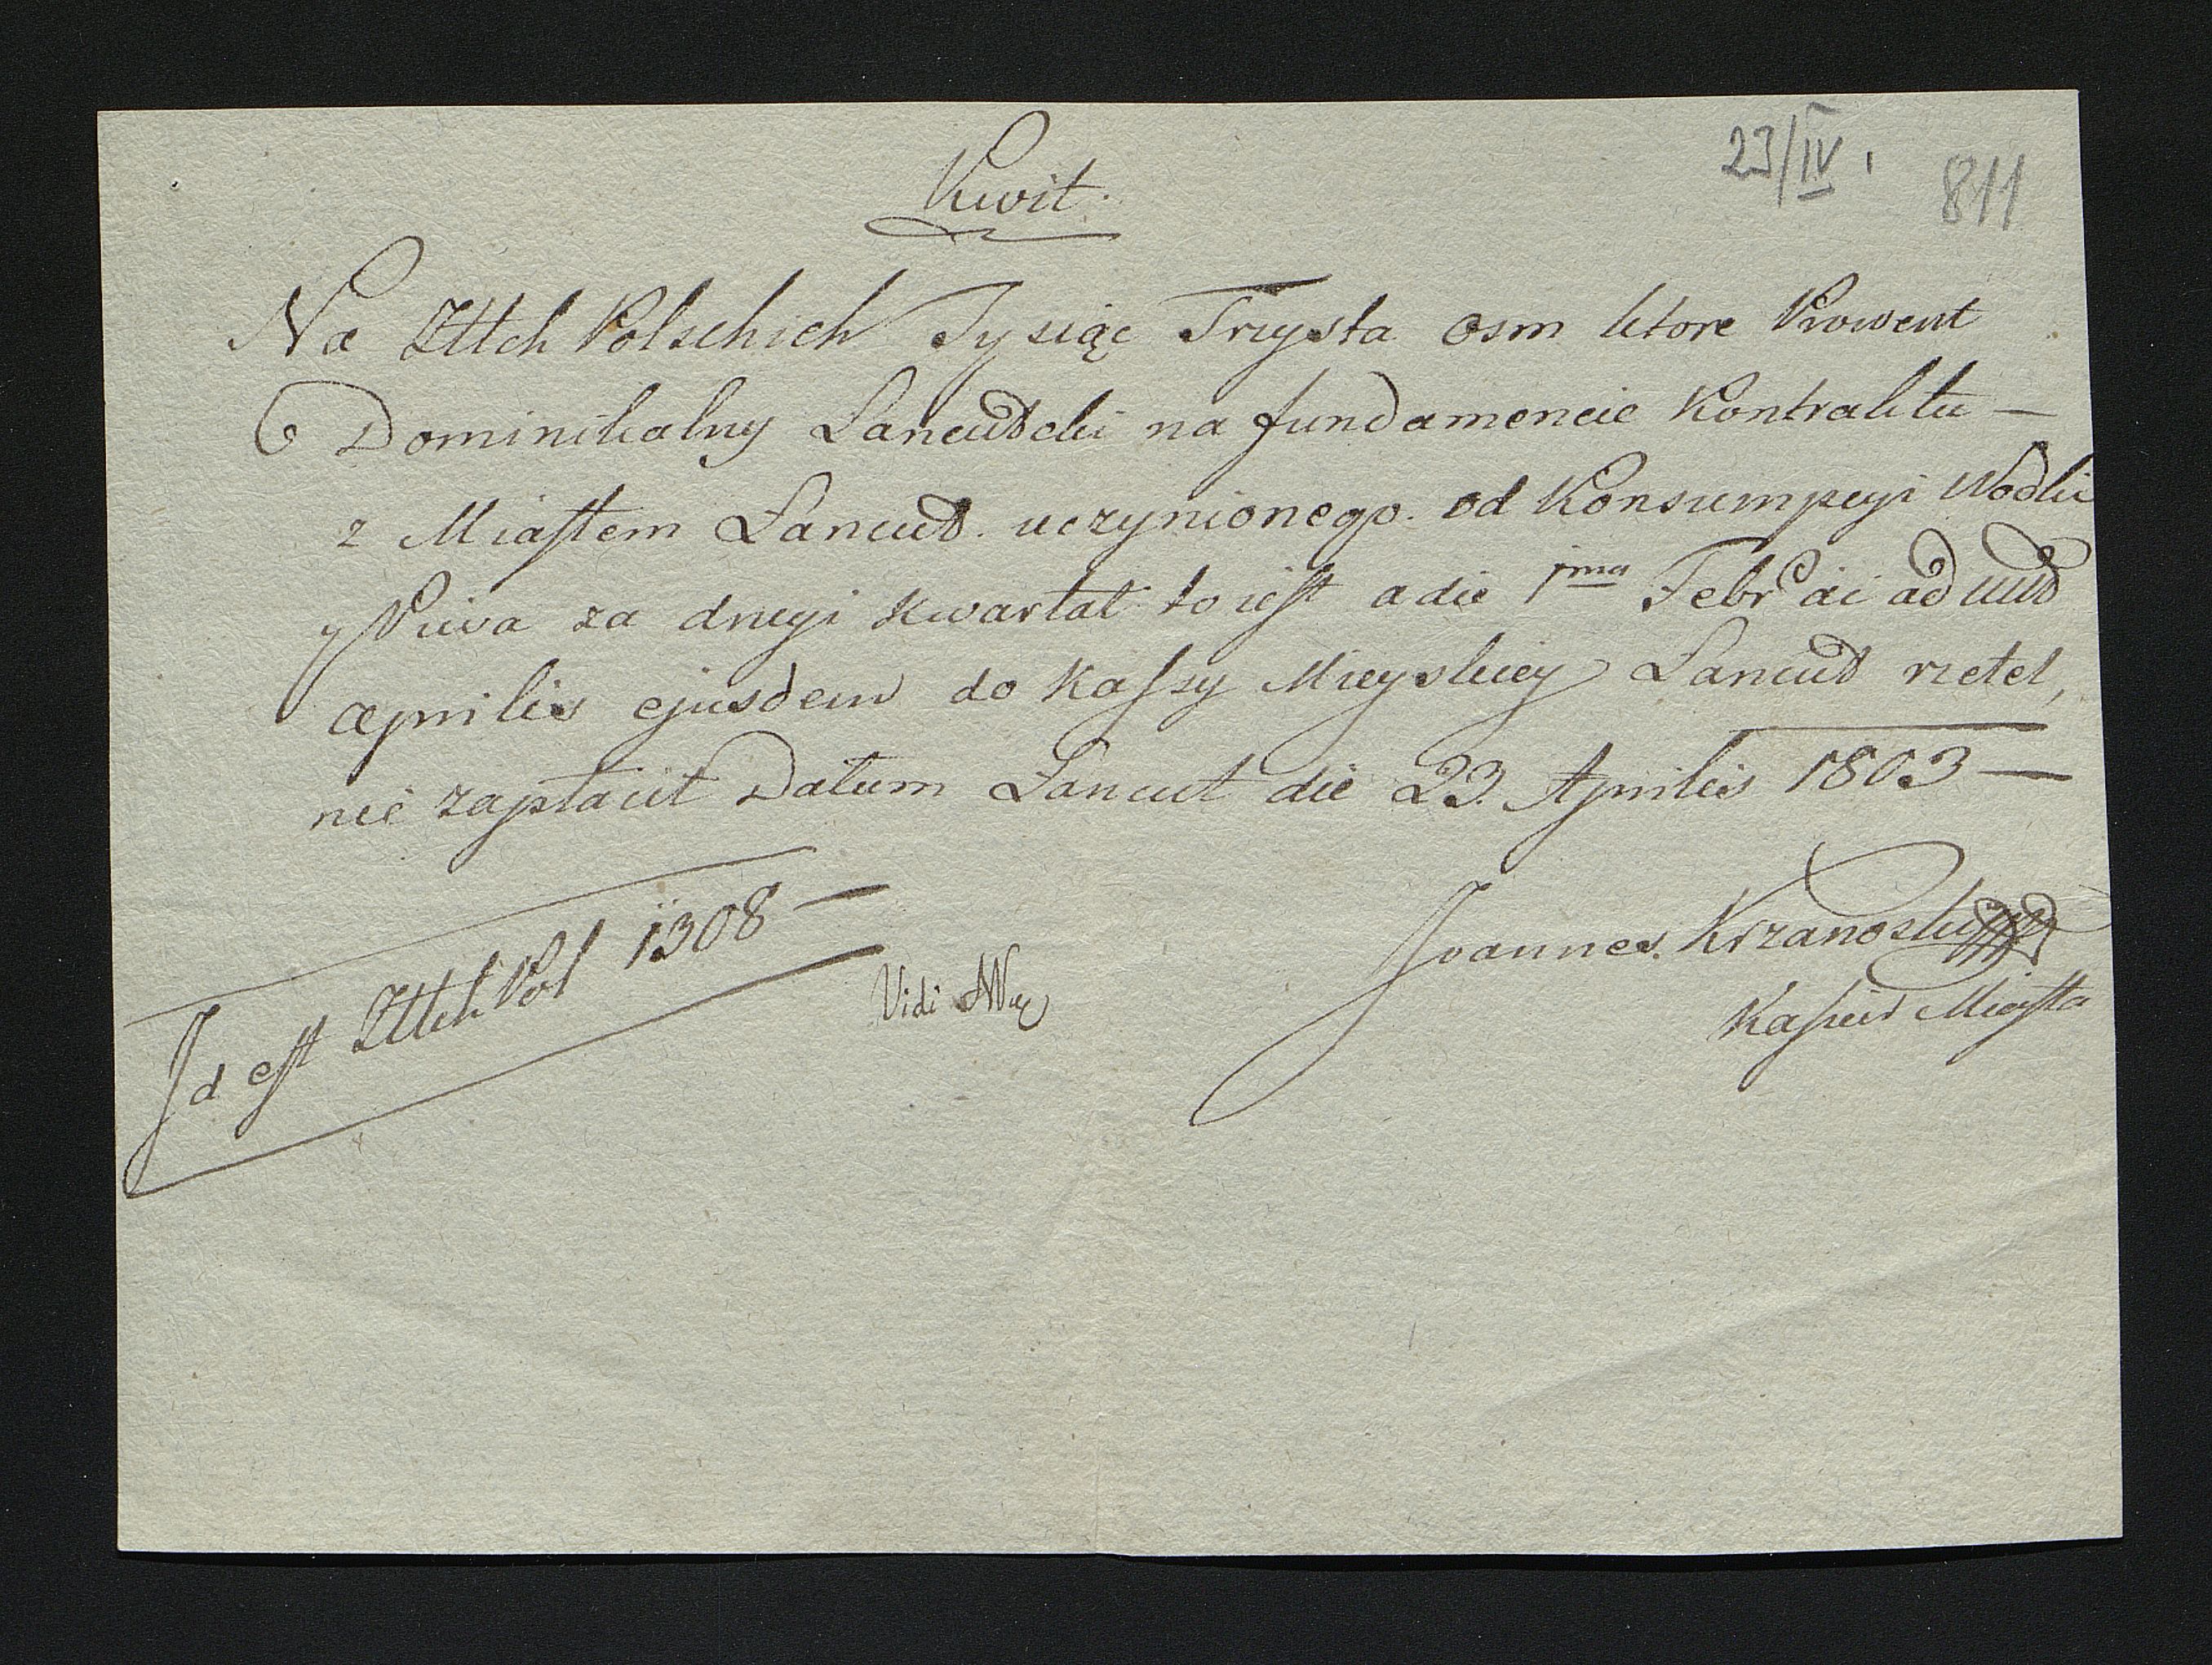 23/IV.
811
Kwit.
Na Złtch Polskich Tysiąc Trzysta osm ktore Prowent
Dominikalny Łancudzki na fundamencie Kontraktu —
z Miastem Łancud. uczynionego. od Konsumpcyi Wodki
y Piwa za drugi kwartał to iest a die 1ma Febr ai ad
Aprilis ejusdem do Kassy Mieyskiey Łancud rzetel,
nie zapłacił Datum Łancut die 23. Aprilis 1803 —
Id est Złtch Pol 1308 —
Vidi
Joannes. Krzanoski
Kasier Miasta